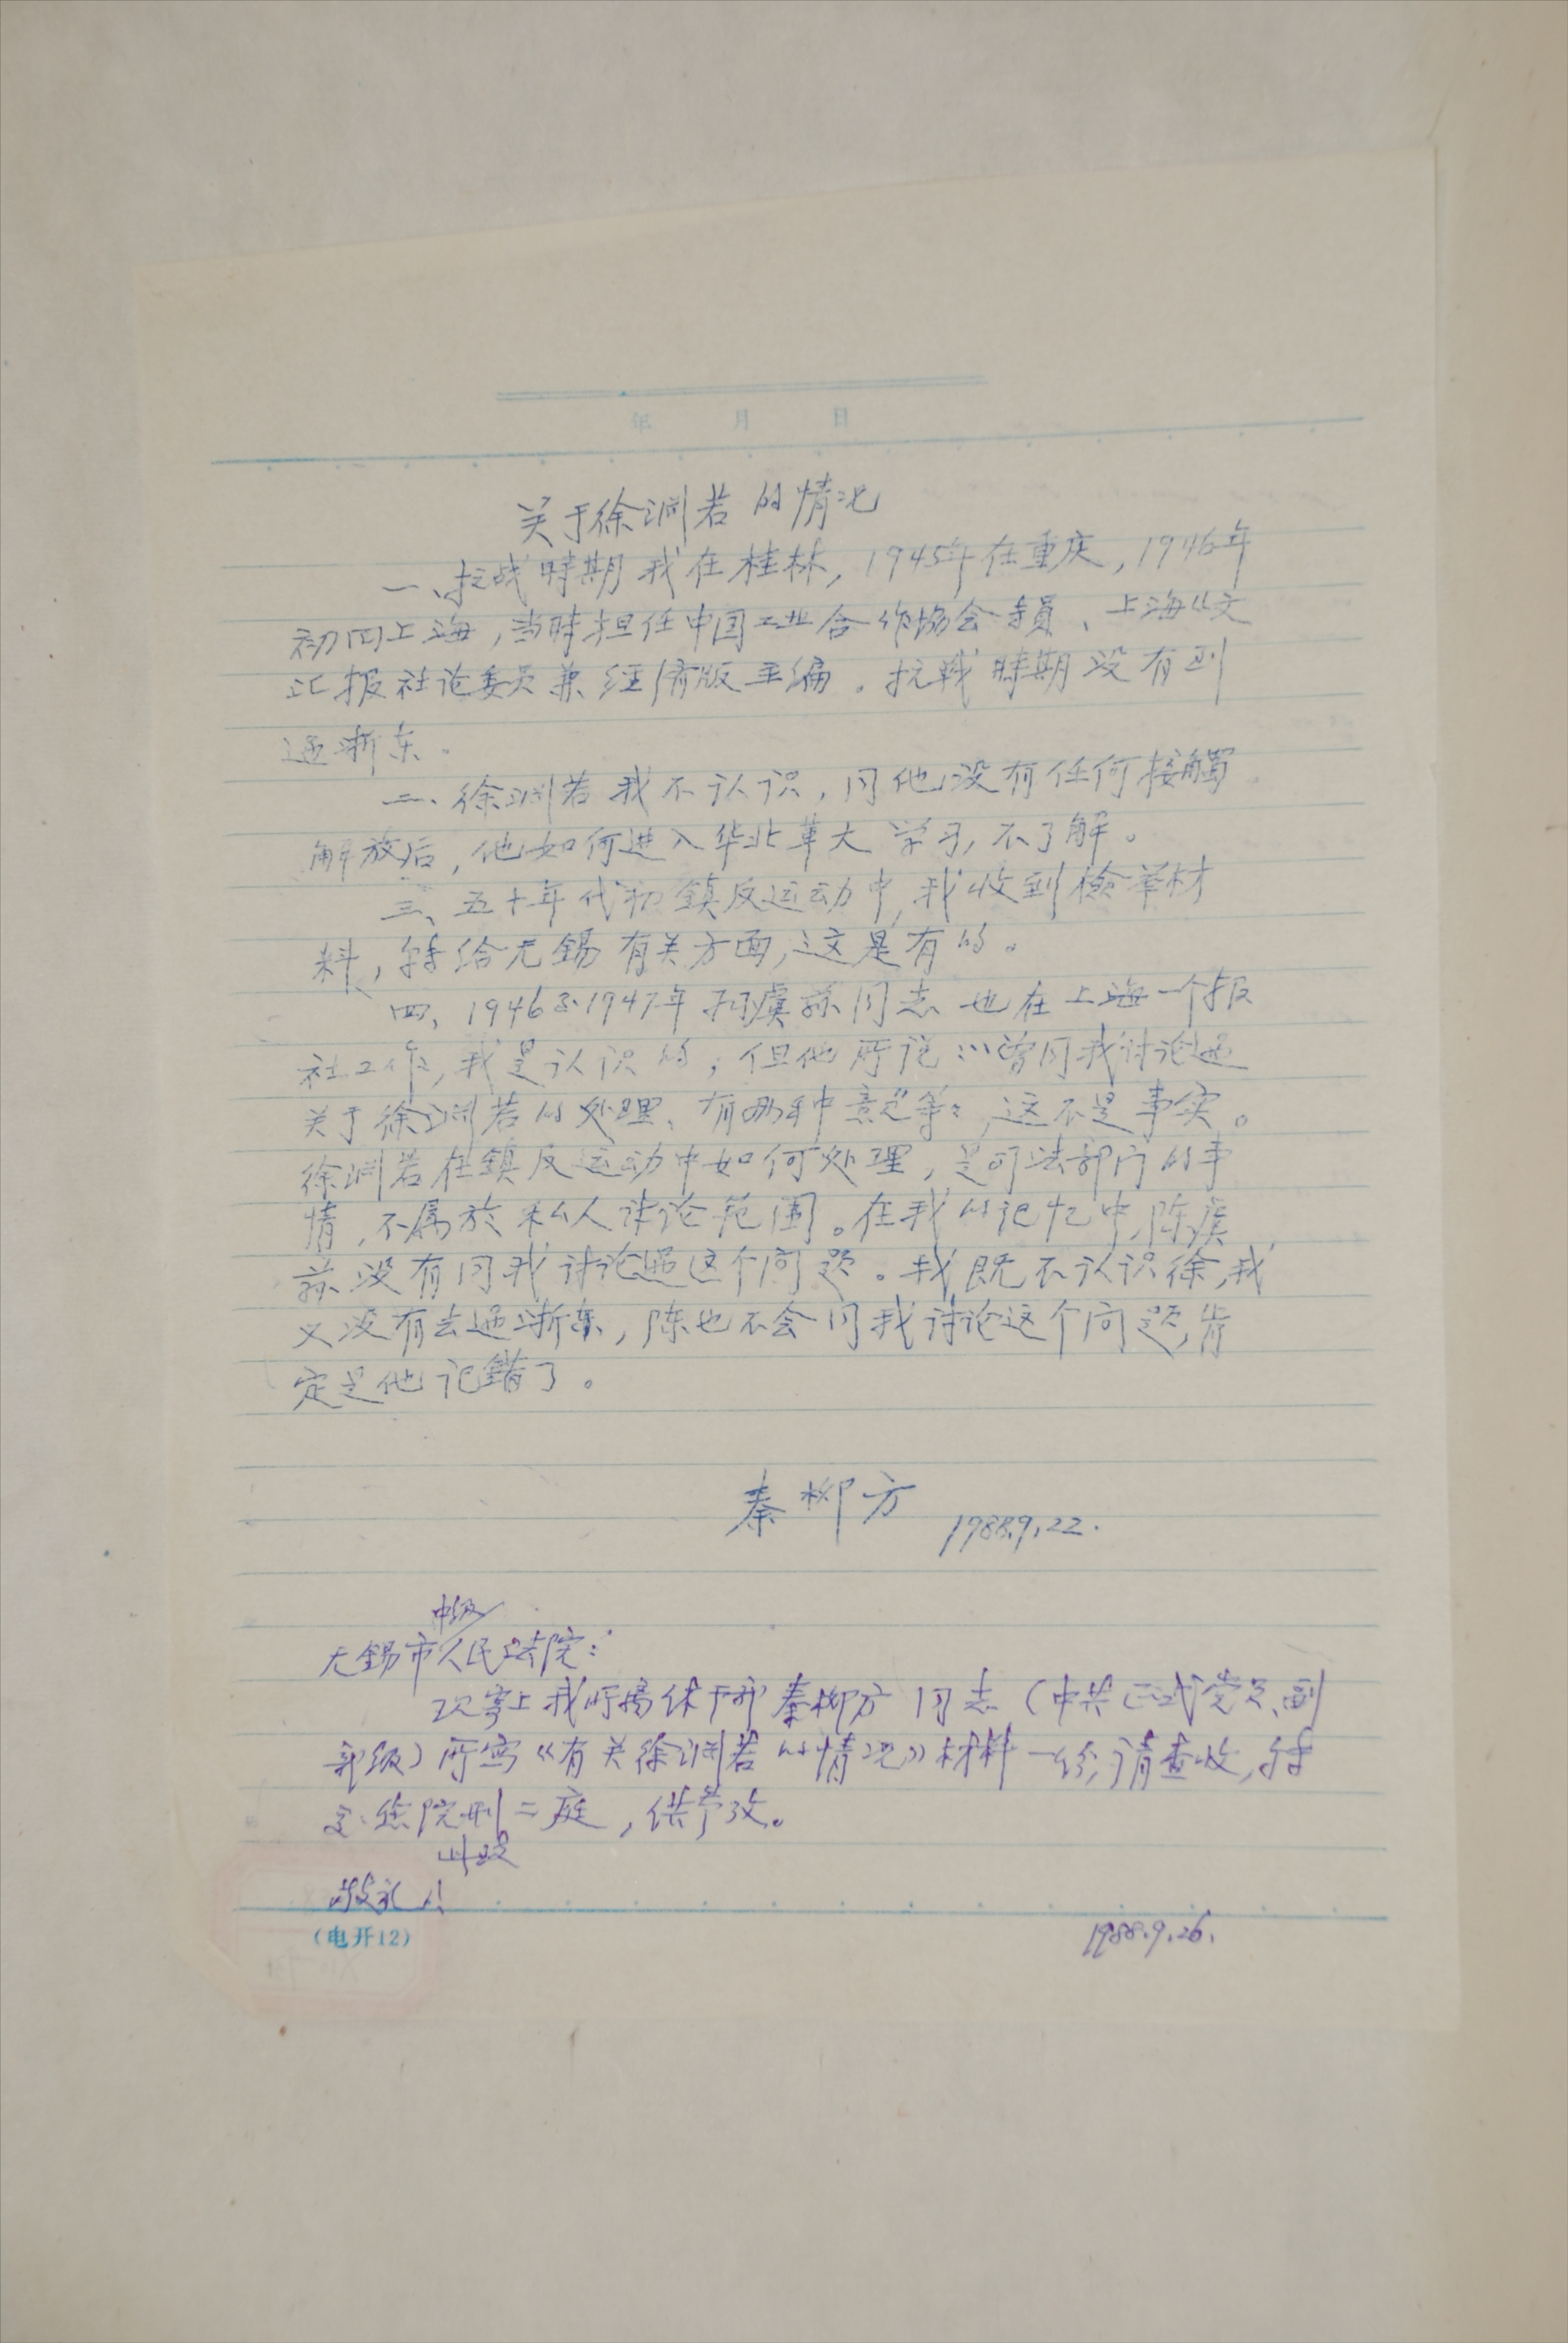 年 月 日
关于徐渊若的情况
一、抗战時期我在桂林，1945年在重庆，1946年
初回上海，当時担任中国工业合作協会専員、上海《文
汇报社论委员兼经济版主编。抗戰時期没有到
过浙东。
二、徐渊若我不认识，同他没有任何接觸
解放后，他如何进入华北革大学习，不了解。
三、五十年代初鎮反运动中，我收到檢举材
料，转给无錫有关方面，这是有的。
四、1946至1947年孙虞荪同志也在上海一个报
社工作，我是认识的；但他所说："曾同我讨论过
关于徐渊若的处理、有两种意见"等，这不是事实。
徐渊若在鎮反运动中如何处理，是司法部门的事
情，不属於私人讨论范围。在我的记忆中，陈虞
荪没有同我讨论过这个问题。我既不认识徐，我
又没有去过浙东，陈也不会同我讨论这个问题，肯
定是他记錯了。
秦柳方 1988.9.22.
中级
无锡市人民法院：
现寄上我所离休干部秦柳方同志（中共正式党员、副
部级）所写《有关徐渊若的情况》材料一份，请查收，转
交您院刑二庭，供参攷。
此致
敬礼！
（电开12）
1988.9.26.